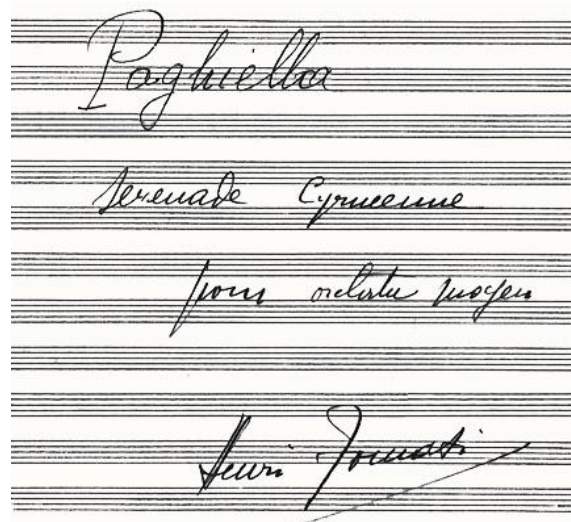 Paghiella
Serenade Cyrneenne
pour orchestre moyen
Henri Tomasi